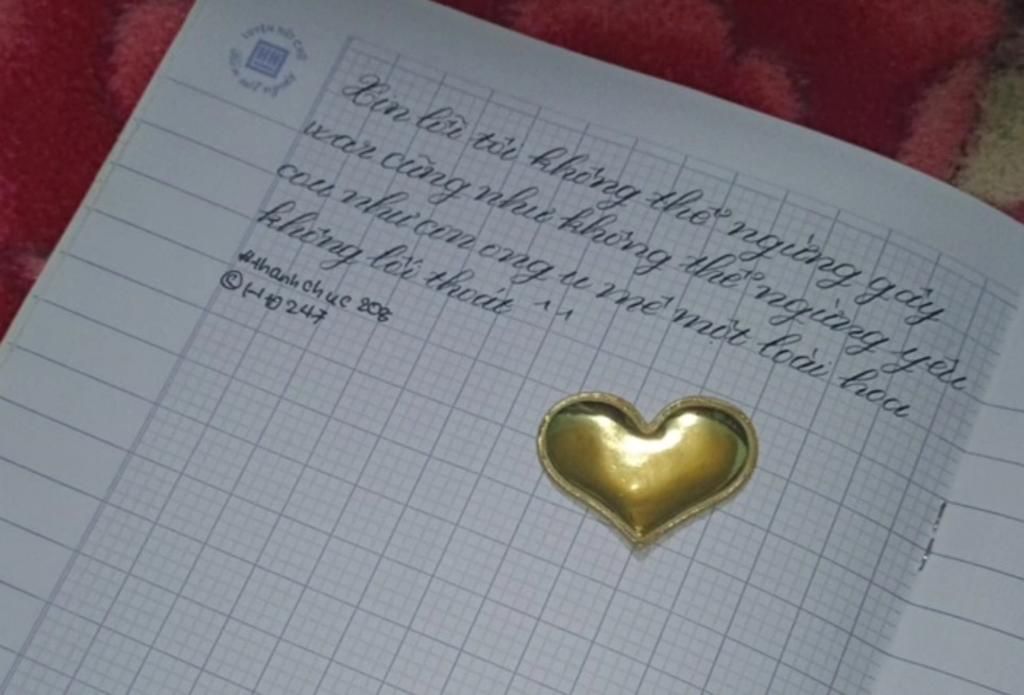 Xin lỗi tôi không thể ngừng gây
war cũng như không thể ngừng yêu
cou như con ong u mê một loài hoa
không lối thoát ^^
#thanhchuc208
© HD247